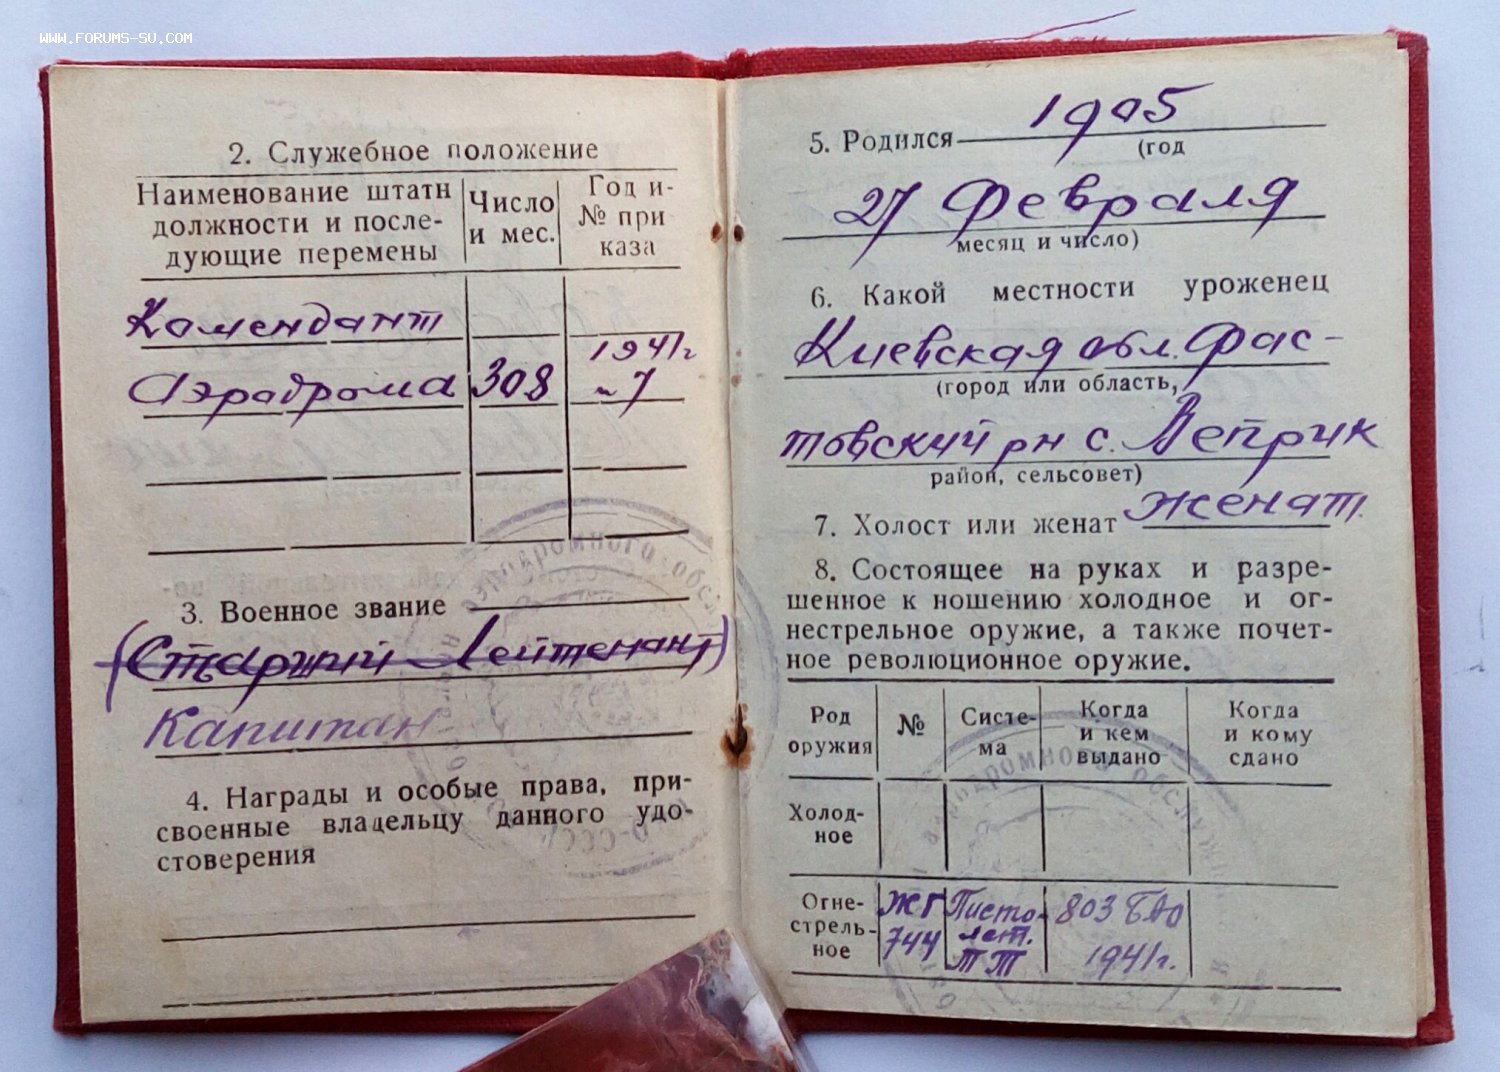 WWW.FORUMS-SU.COM
2. Служебное положение
Наименование штатн
должности и после-
дующие перемены
Число
и мес.
Год и-
№ при
каза
Комендант
Аэродрома 308 1941г
~ 7
3. Военное звание
(Старший Лейтенант)
Капитан
4. Награды и особые права, при-
своенные владельцу данного удо-
стоверения
5. Родился 1905
(год
27 Февраля
месяц и число)
6. Какой местности уроженец
Киевская обл. Фас-
(город или область,
товский рн с. Веприк
район, сельсовет)
7. Холост или женат женат
8. Состоящее на руках и разре-
шенное к ношению холодное и ог-
нестрельное оружие, а также почет-
ное революционное оружие.
Род
оружия
№
Систе-
ма
Когда
и кем
выдано
Когда
и кому
сдано
Холод-
ное
Огне-
стрель-
ное
ЖГ
744
Писто-
лет.
ТТ
803 БАО
1941г.
аэродромного обслужи